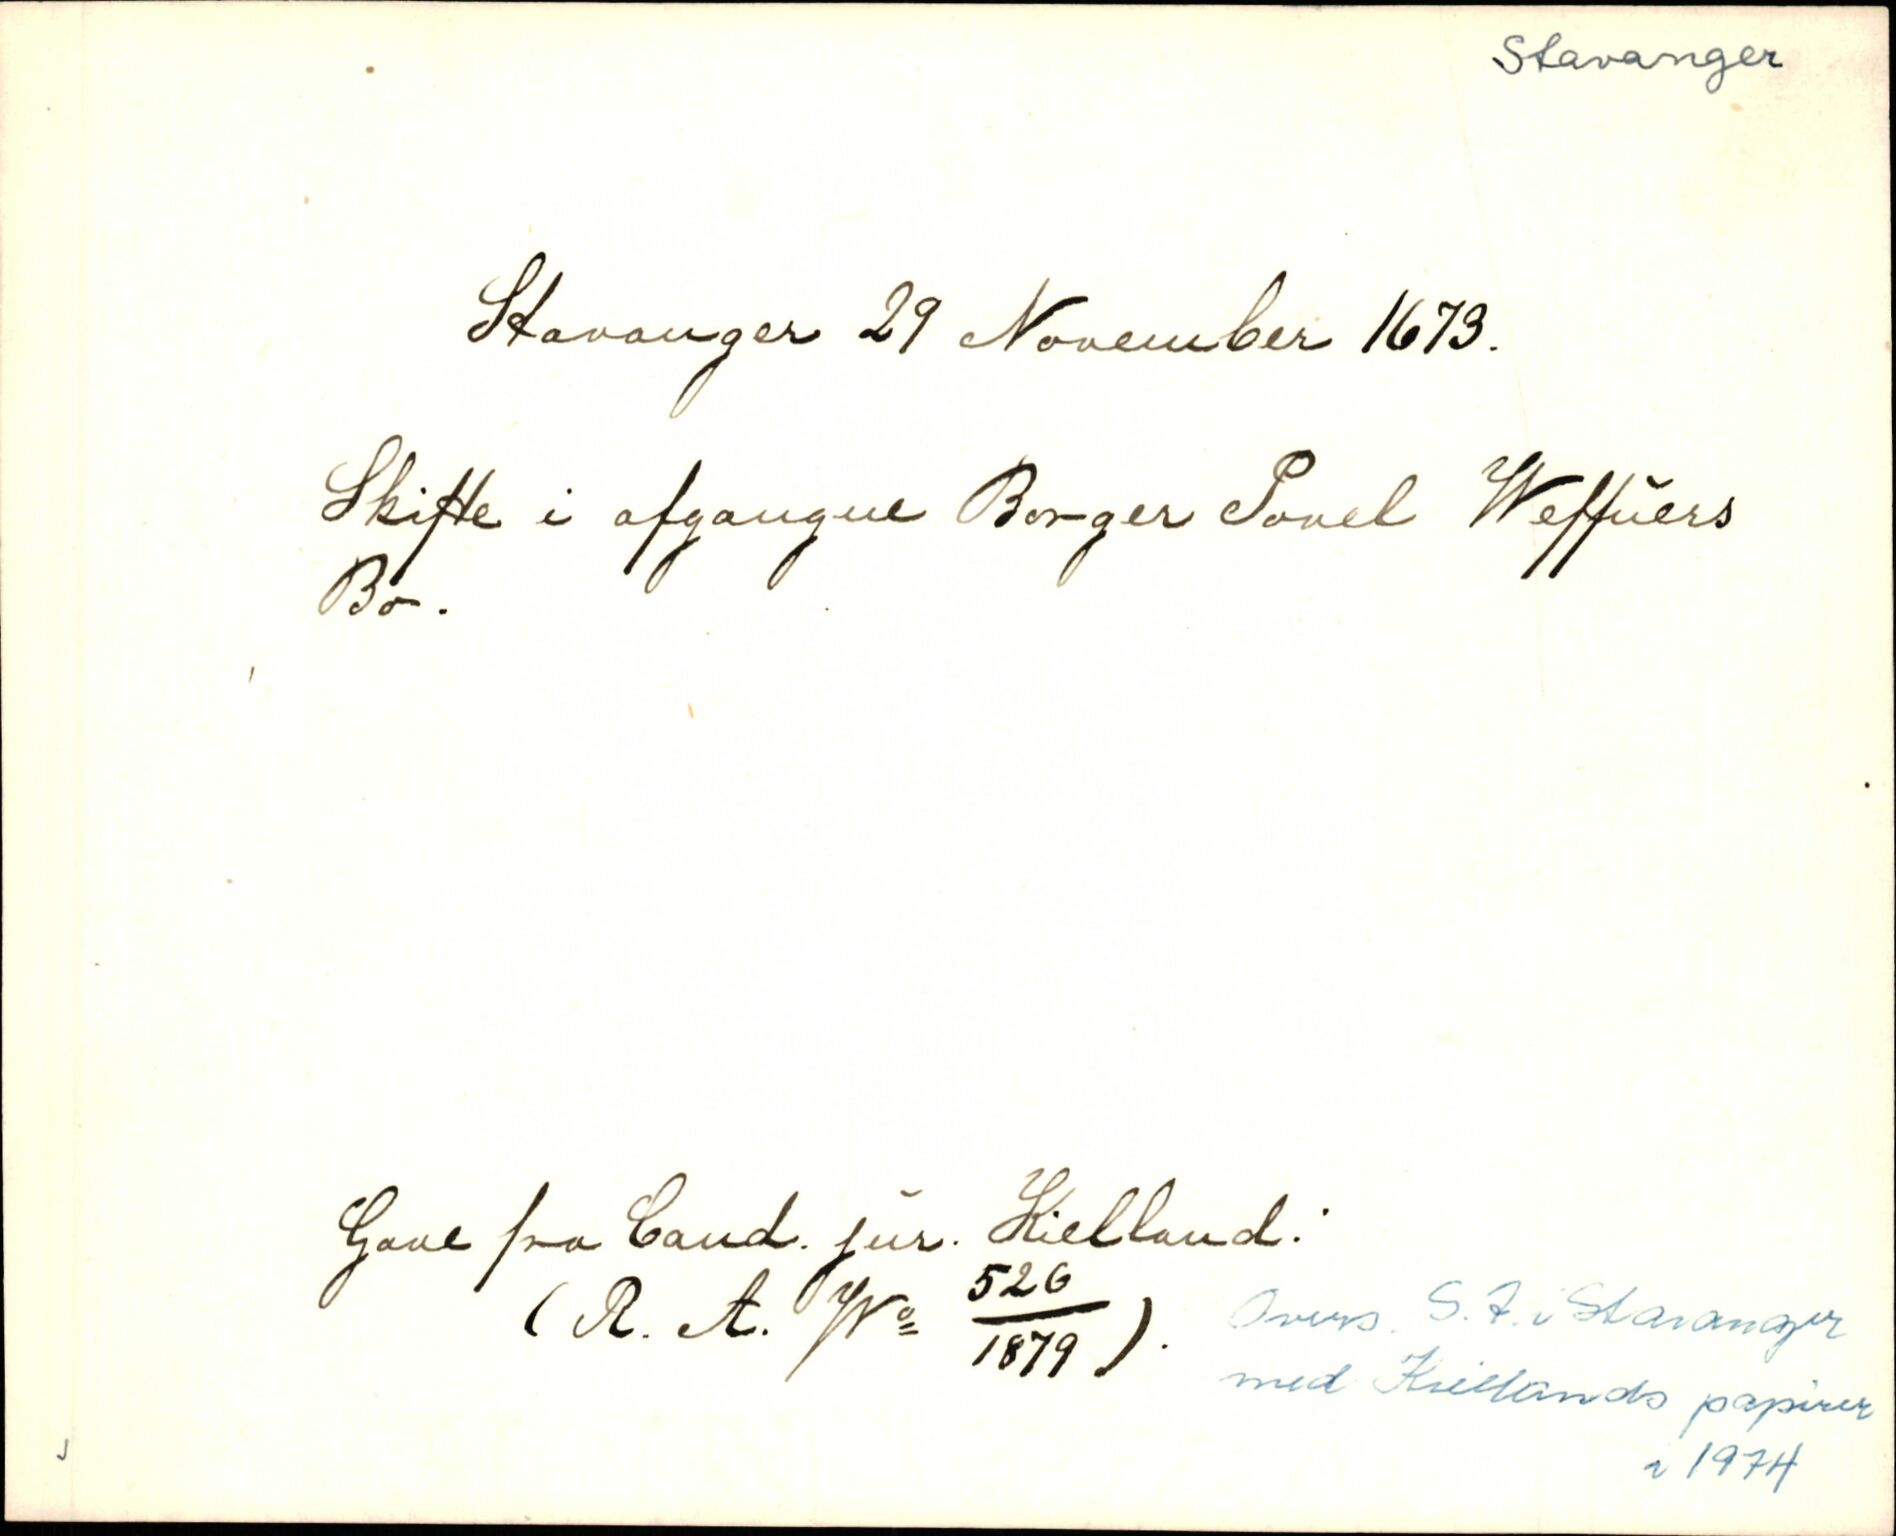 Stavanger
Stavanger 29 November 1673.
Skifte i afgangne Borger Povel Weffůers
Bo.
Gave fra Cand. jur. Kielland.
(R. A. No 526/1879).
Overs. S.A. i Stavanger
med Kiellands papirer
i 1974